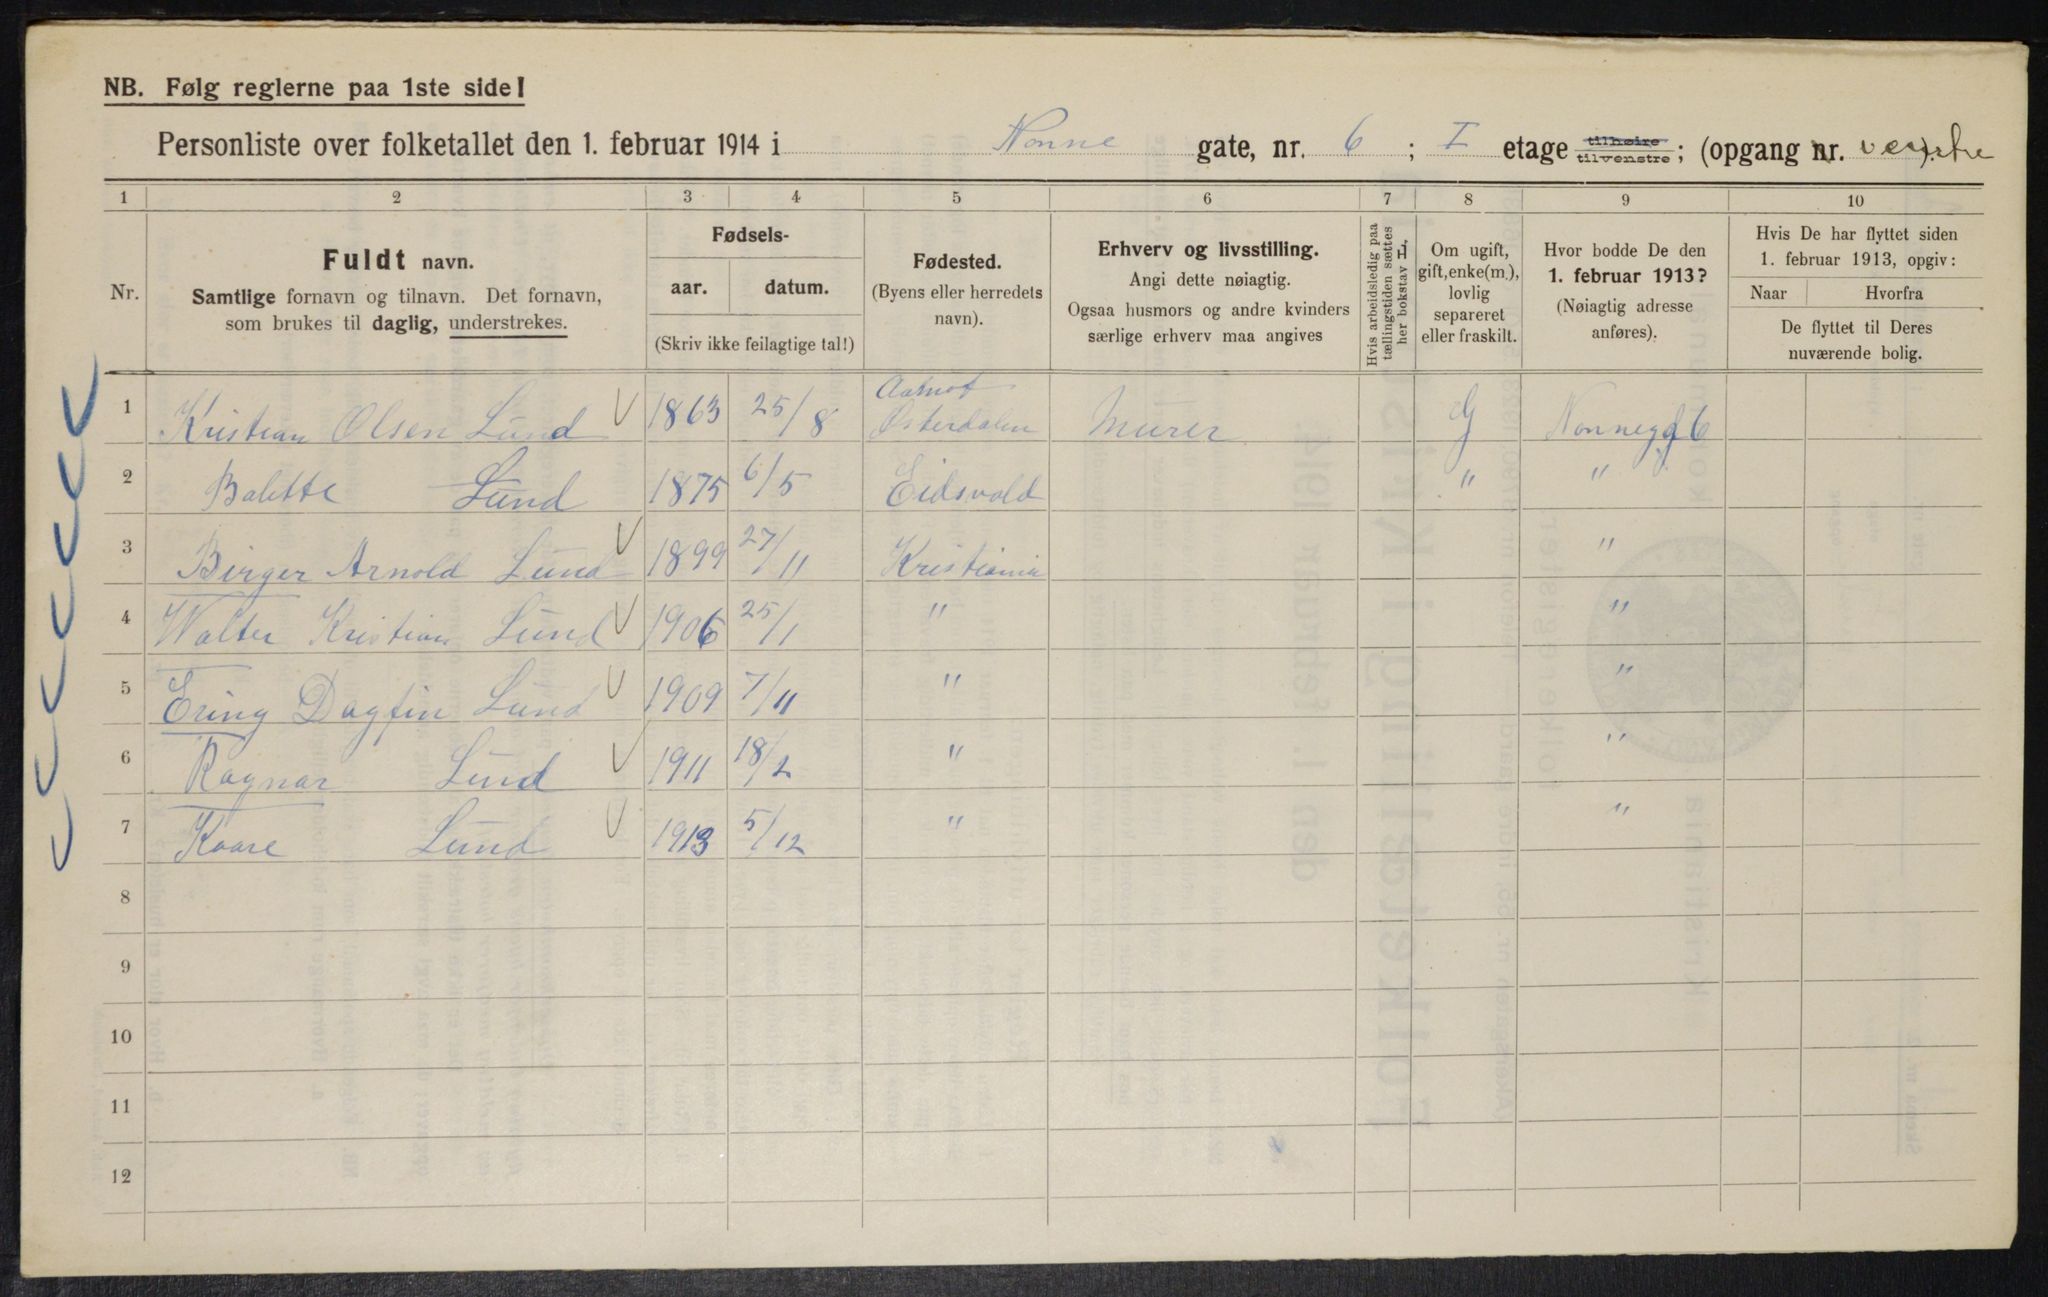 NB. Følg reglerne paa 1ste side!
Personliste over folketallet den 1. februar 1914 i Nonne gate, nr. 6 ; I etage tilhøire tilvenstre ; (opgang nr. venstre ).
1 2 3 4 5 6 7 8 9 10
Nr.
Fuldt navn.
Samtlige fornavn og tilnavn. Det fornavn,
som brukes til daglig, understrekes.
Fødsels-
aar. datum.
(Skriv ikke feilagtige tal!)
Fødested.
(Byens eller herredets
navn).
Erhverv og livsstilling.
Angi dette nøiagtig.
Ogsaa husmors og andre kvinders
særlige erhverv maa angives
Hvis arbeidsledig paa
tællingstiden sættes
her bokstav L.
Om ugift,
gift, enke(m.),
lovlig
separeret
eller fraskilt.
Hvor bodde De den
1. februar 1913?
(Nøiagtig adresse
anføres).
Hvis De har flyttet siden
1. februar 1913, opgiv:
Naar Hvorfra
De flyttet til Deres
nuværende bolig.
1 Kristian Olsen Lund 1863 25/8 Aamot Østerdalen Murer G Nonnegd 6
2 Balette Lund 1875 6/5 Eidsvold " "
3 Birger Arnold Lund 1899 27/11 Kristiania "
4 Walter Kristian Lund 1906 25/1 " "
5 Ering Dagfin Lund 1909 7/11 " "
6 Ragnar Lund 1911 18/2 " "
7 Kaare Lund 1913 5/12 " "
8
9
10
11
12